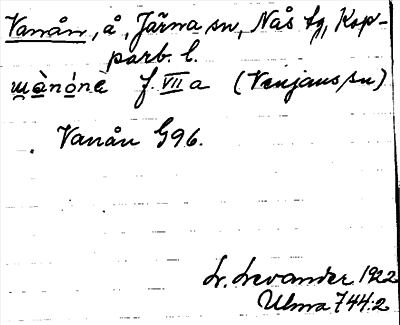 Vanån, å, Järna sn, Nås tg, Kop-
parb. l.
f. VII a (Venjans sn)
Vanån G96.
L. Levander 1922
Ulma 744:2